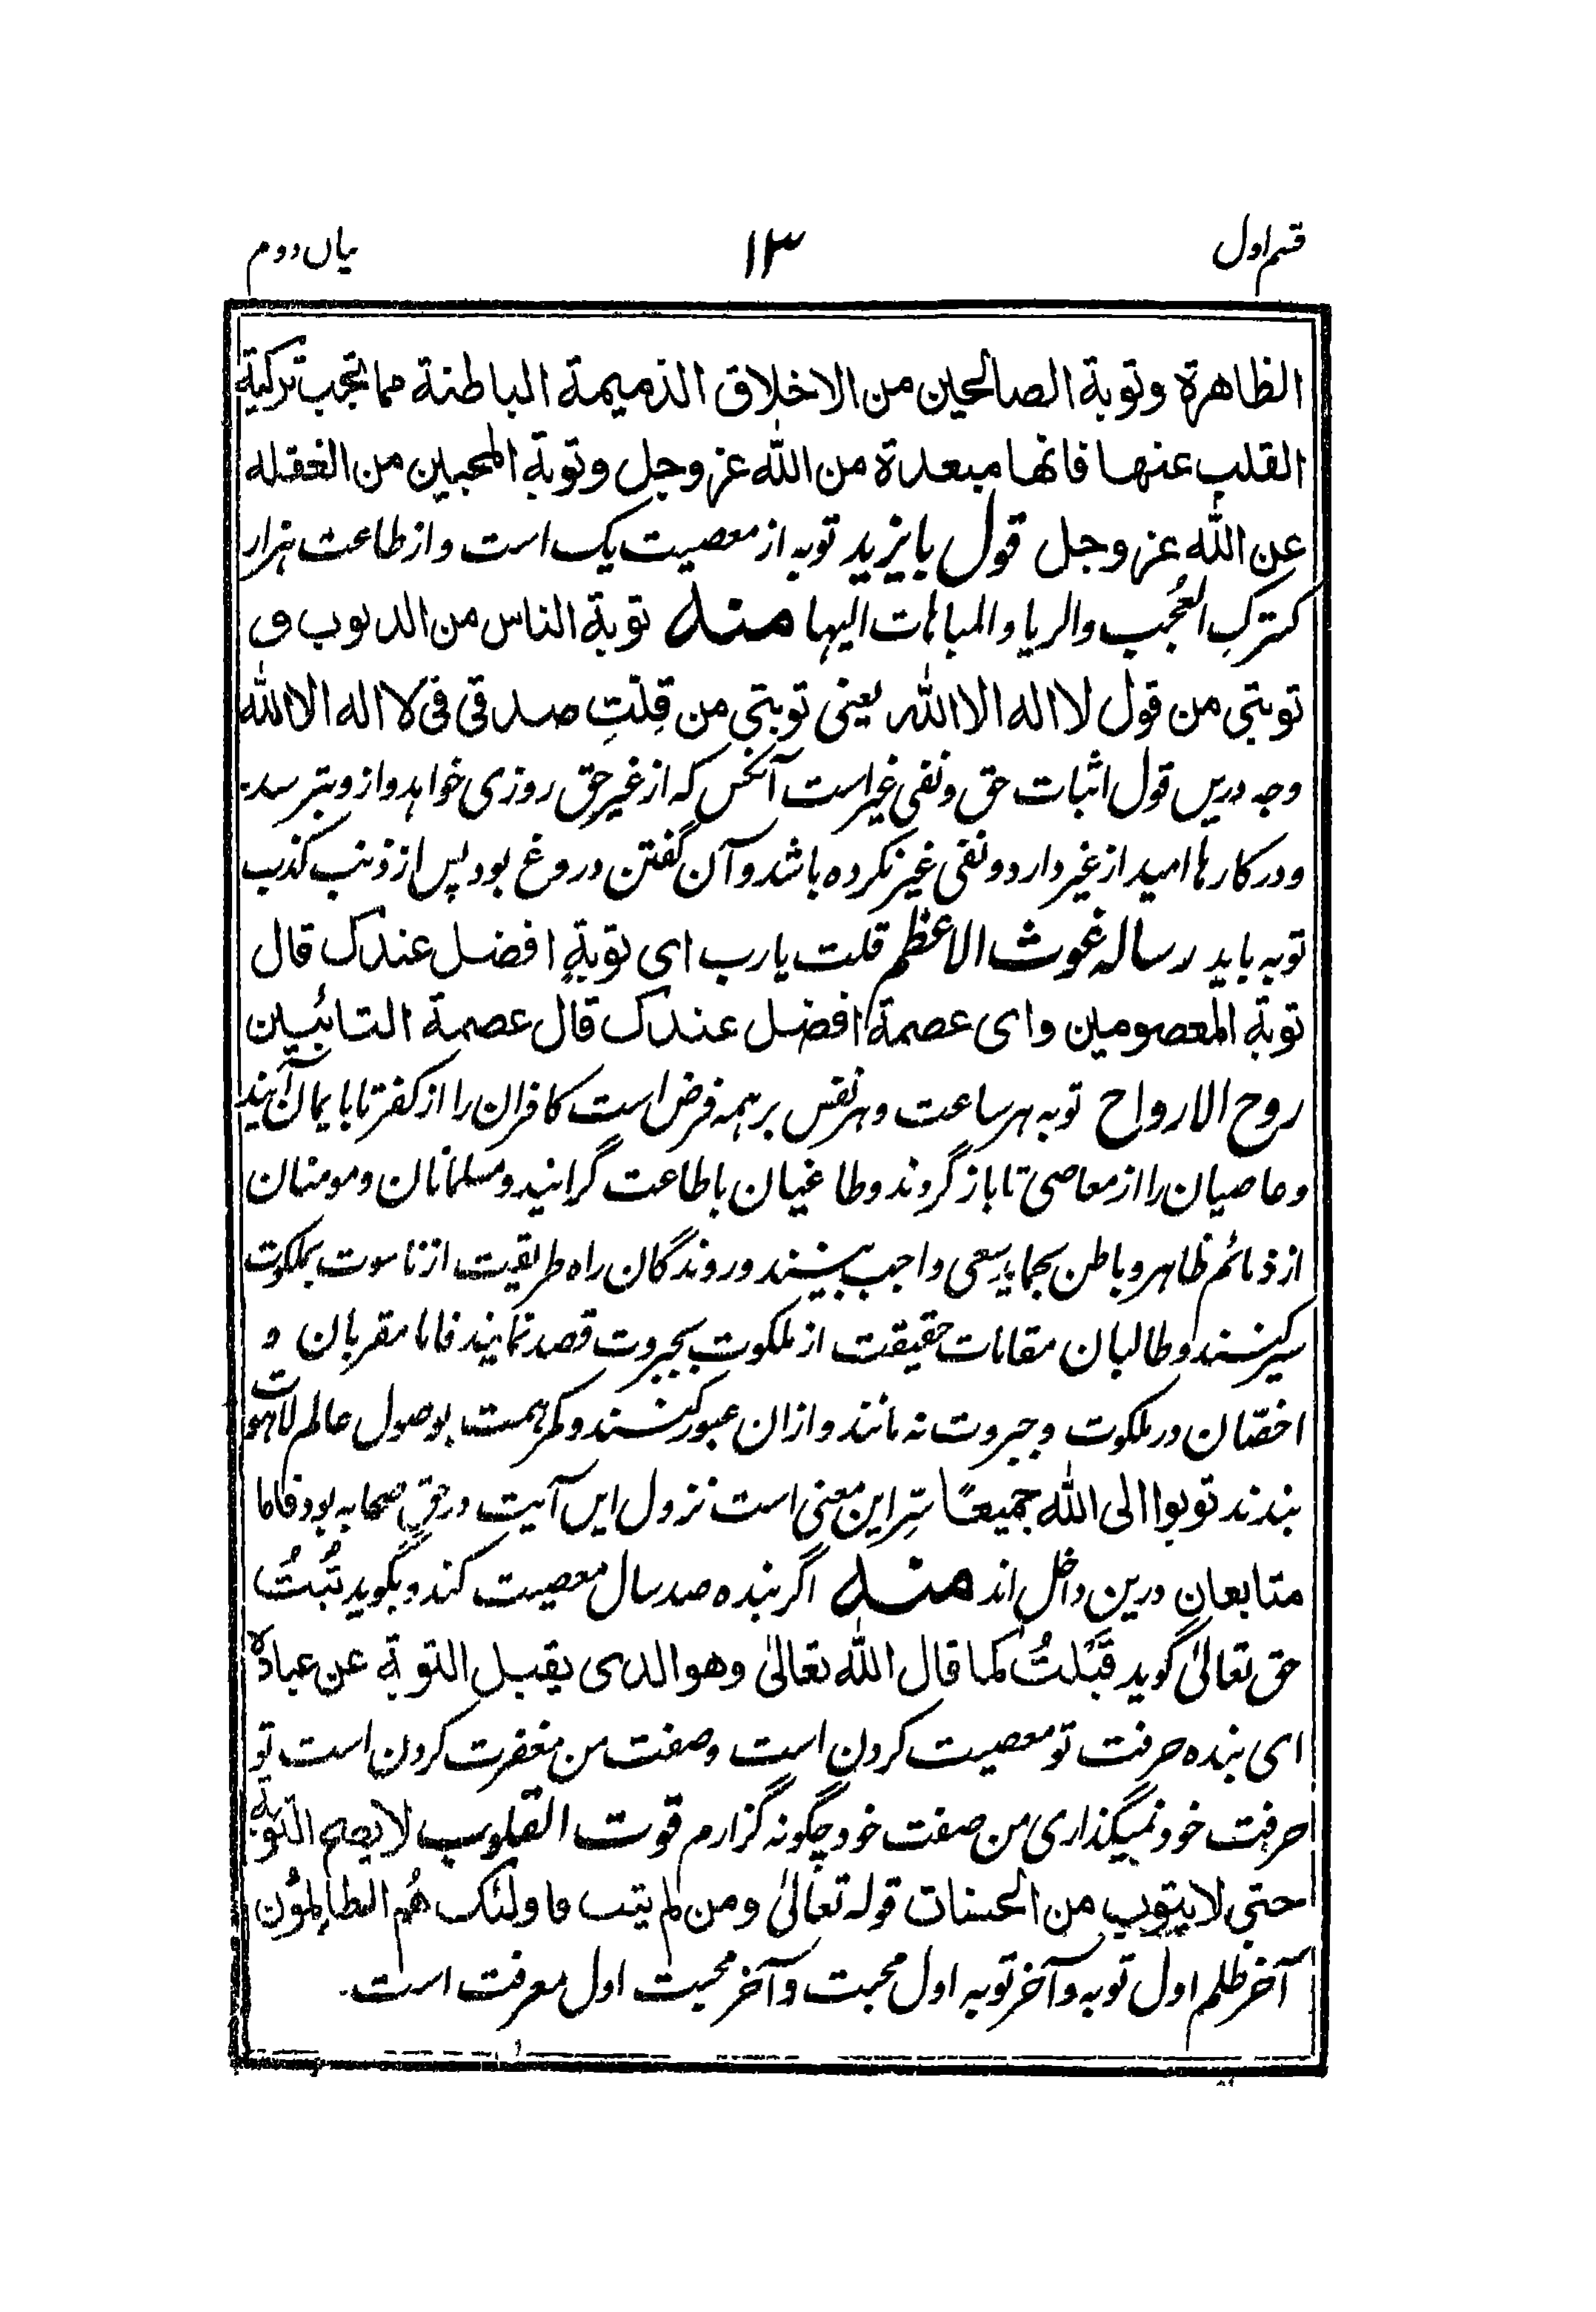 قسم اول
۱۳
بیاں دوم
الظاهرة وتوبة الصالحين من الاخلاق الذميمة الباطنة مما تجب تزكية
القلب عنها فانها مبعدة من الله عز وجل وتوبة المحبين من الغفله
عن الله عز وجل قول بایزید توبه از معصیت یک است و از طاعت هزار
کترکِ العُجب والریا والمباهات الیها منه توبة الناس من الدنوب و
توبتی من قول لا اله الا الله یعنی توبتی من قِلّتِ صدقی فی لا اله الا الله
وجه دریں قول اثبات حق و نفی غیر است آنکس که از غیر حق روزی خواهد و از و بترسد
و در کارها امید از غیر دارد و نفی غیر نکرده باشد و آن گفتن دروغ بود پس از ذنب کذب
توبه باید رساله غوث الاعظم قلت یارب ای توبةٍ افضل عندک قال
توبة المعصومین و ای عصمة افضل عندک قال عصمة التائبین
روح الارواح توبه هر ساعت و هر نفس بر همه فرض است کافران را از کفر تا بایمان آیند
و عاصیان را از معاصی تا باز گروند و طاغیان باطاعت گرایند و مسلمانان و مومنان
از ذمائم ظاهر و باطن بجماید سعی واجب بینند و روندگان راه طریقیت از ناسوت بملکوت
سیر کنند و طالبان مقامات حقیقت از ملکوت بجبروت قصد نمایند فاما مقربان و
اخصّان در ملکوت و جبروت نه مانند و ازان عبور کنند و کمر همت بوصول عالم لاهوت
بندند توبوا الی الله جمیعًا سِرّ این معنی است نزول ایں آیت در حق صحابه بود فاما
متابعان درین داخل اند منه اگر بنده صد سال معصیت کند و بگوید تُبتُ
حق تعالیٰ گوید قَبَلتُ کما قال الله تعالیٰ وهو الدی یقبل التوبة عن عباده
ای بنده حرفت تو معصیت کردن است و صفت من مغفرت کردن است تو
حرفت خود نمیگذاری من صفت خود چگونه گزارم قوت القلوب لا یصح التوبة
حتی لا یتوب من الحسنات قوله تعالیٰ ومن لم یتب فاولئک هُم الظالِمُون
آخر ظلم اول توبه و آخر توبه اول محبت و آخر محبت اول معرفت است.